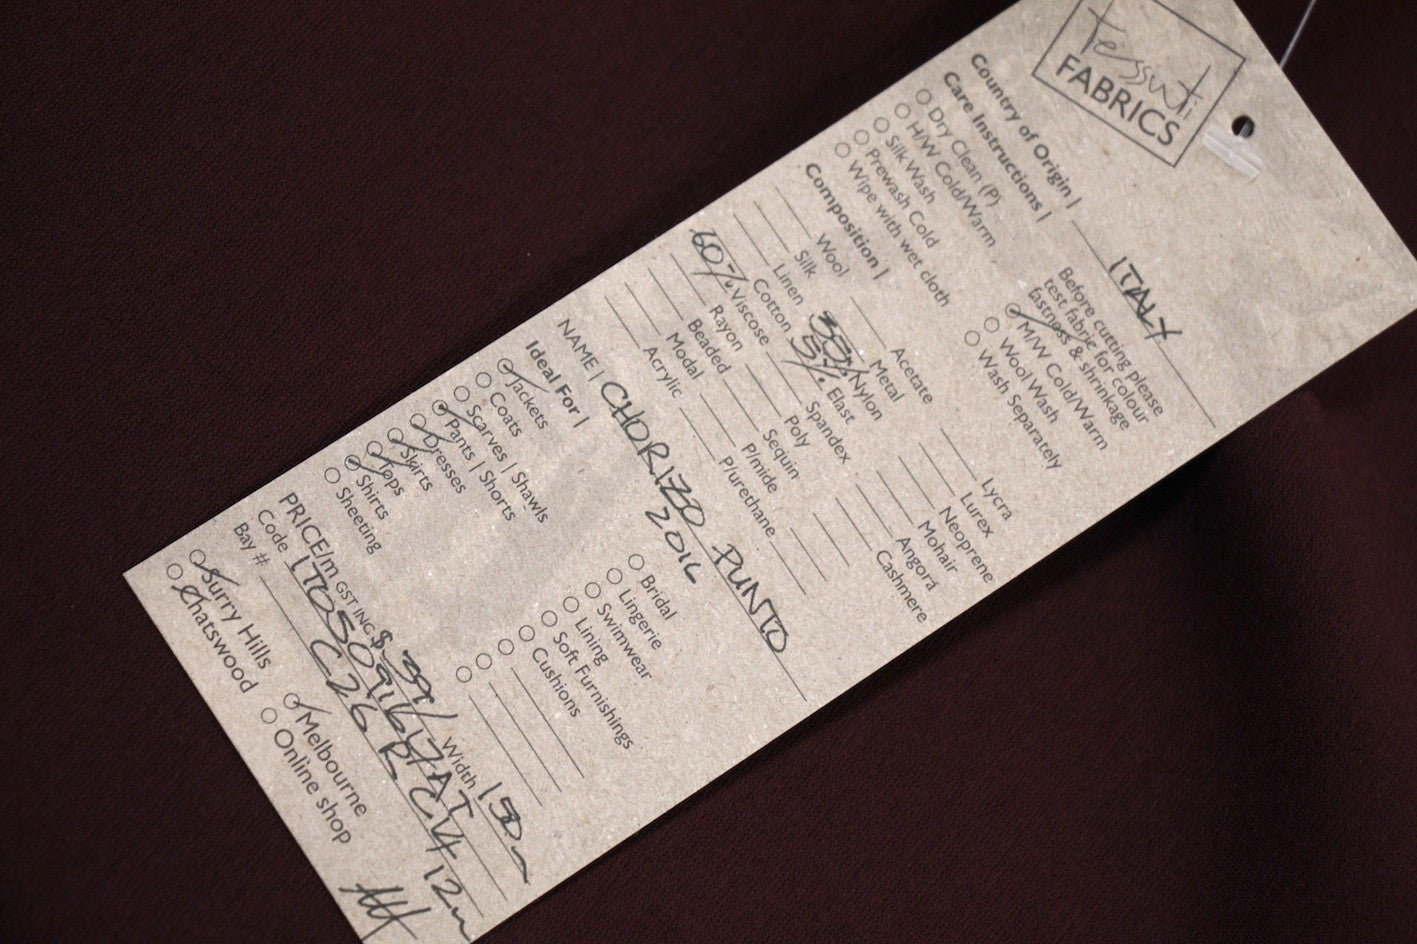 Tessuti
FABRICS
Country of Origin | ITALY
Care Instructions |
Dry Clean (P)
H/W Cold/Warm
Silk Wash
Prewash Cold
Wipe with wet cloth
Before cutting please
test fabric for colour
fastness & shrinkage
M/W Cold/Warm
Wool Wash
Wash Separately
Composition |
Wool
Silk
Linen
Cotton
60% Viscose
Rayon
Beaded
Modal
Acrylic
Acetate
Metal
Nylon
5% Elast
Spandex
Poly
Sequin
P/mide
P/urethane
Lycra
Lurex
Neoprene
Mohair
Angora
Cashmere
NAME | CHORIZO PUNTO
2016
Ideal For |
Jackets
Coats
Scarves | Shawls
Pants | Shorts
Dresses
Skirts
Tops
Shirts
Sheeting
Bridal
Lingerie
Swimwear
Lining
Soft Furnishings
Cushions
PRICE/m GST INC $39/ Width 150
Code ITO5091617AT
Bay # C26 R CV4 12m
Surry Hills
Chatswood
Melbourne
Online shop